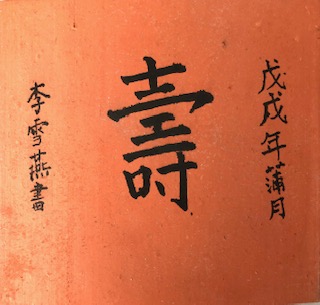 戊戌年蒲月
壽
李雪燕書